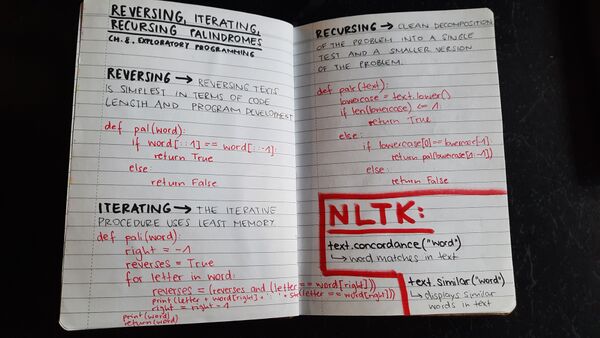 REVERSING, ITERATING,
RECURSING PALINDROMES
CH. 8, EXPLORATORY PROGRAMMING
REVERSING → REVERSING TEXTS
IS SIMPLEST IN TERMS OF CODE
LENGTH AND PROGRAM DEVELOPMENT
def pal(word):
if word[::1] == word[::-1]:
return True
else:
return False
ITERATING → THE ITERATIVE
PROCEDURE USES LEAST MEMORY
def pali(word):
right = -1
reverses = True
for letter in word:
reverses = (reverses and (letter == word[right]))
print(letter + word[right] + ' ' + str(letter == word[right]))
right = right - 1
print(word)
return(word)
RECURSING → CLEAN DECOMPOSITION
OF THE PROBLEM INTO A SINGLE
TEST AND A SMALLER VERSION
OF THE PROBLEM.
def palr(text):
lowercase = text.lower()
if len(lowercase) <= 1:
return True
else:
if lowercase[0] == lowercase[-1]:
return pal(lowercase[1:-1])
else:
return False
NLTK:
text.concordance("word")
↳ word matches in text
text.similar("word")
↳ displays similar
words in text